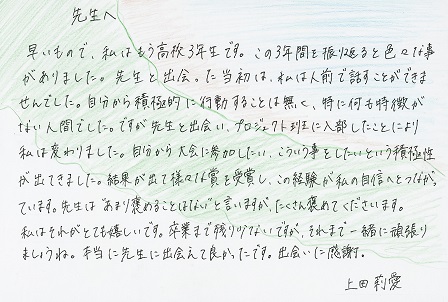 先生へ
早いもので、私はもう高校3年生です。この3年間を振り返ると色々な事
がありました。先生と出会った当初は、私は人前で話すことができま
せんでした。自分から積極的に行動することは無く、特に何も特徴が
ない人間でした。ですが先生と出会い、プロジェクト班に入部したことにより
私は変わりました。自分から大会に参加したい、こういう事をしたいという積極性
が出てきました。結果が出て様々な賞を受賞し、この経験が私の自信へとつながっ
ています。先生は"あまり褒めることはない"と言いますが、たくさん褒めてくださいます。
私はそれがとても嬉しいです。卒業まで残り少ないですが、それまで一緒に頑張り
ましょうね。本当に先生に出会えて良かったです。出会いに感謝。
上田 莉愛